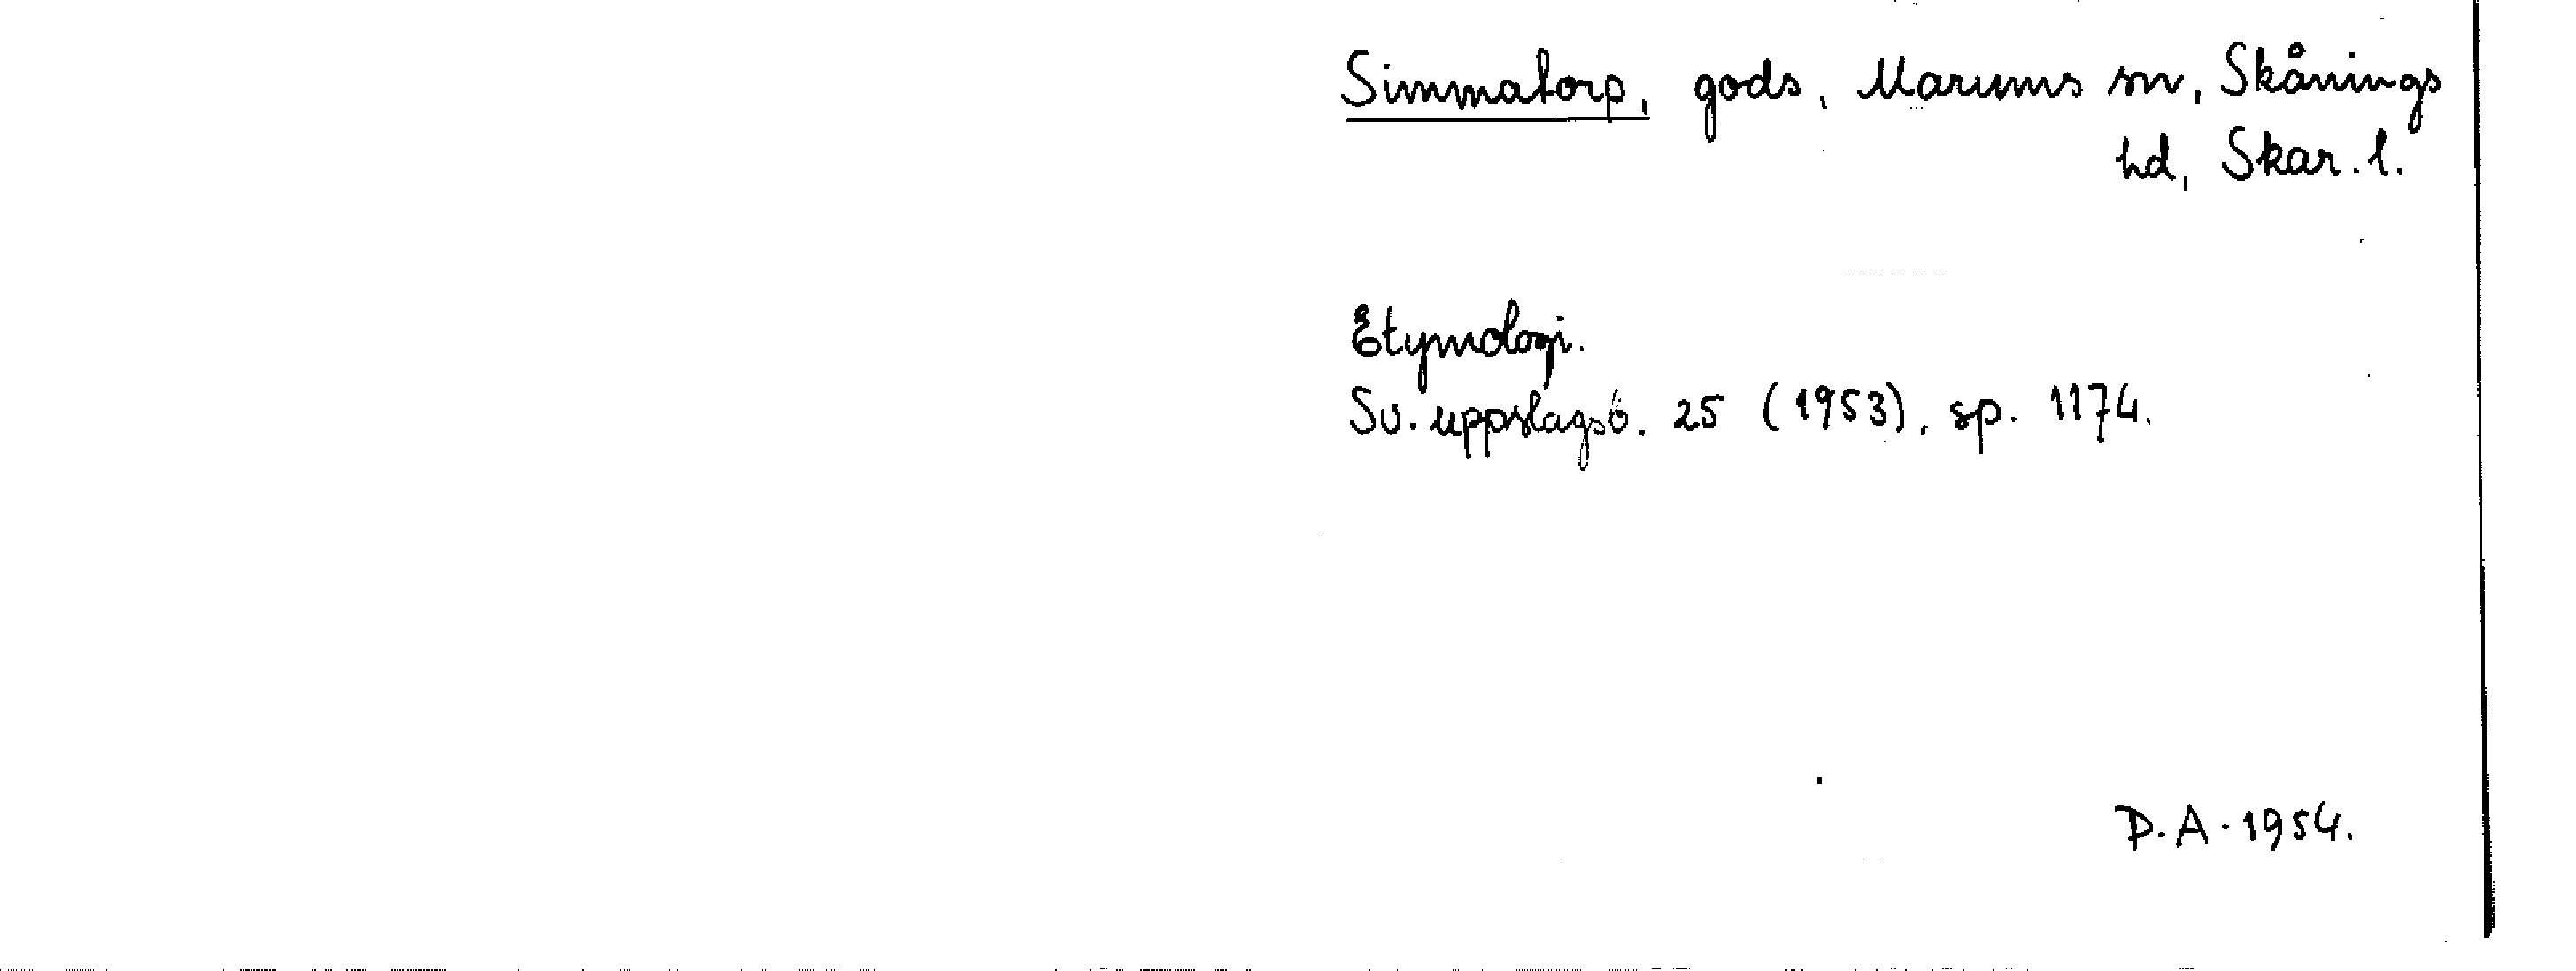 Simmatorp, gods, Marums sn, Skånings
hd, Skar. l.
Etymologi.
Sv. uppslagsb. 25 (1953), sp. 1174.
D.A. 1954.